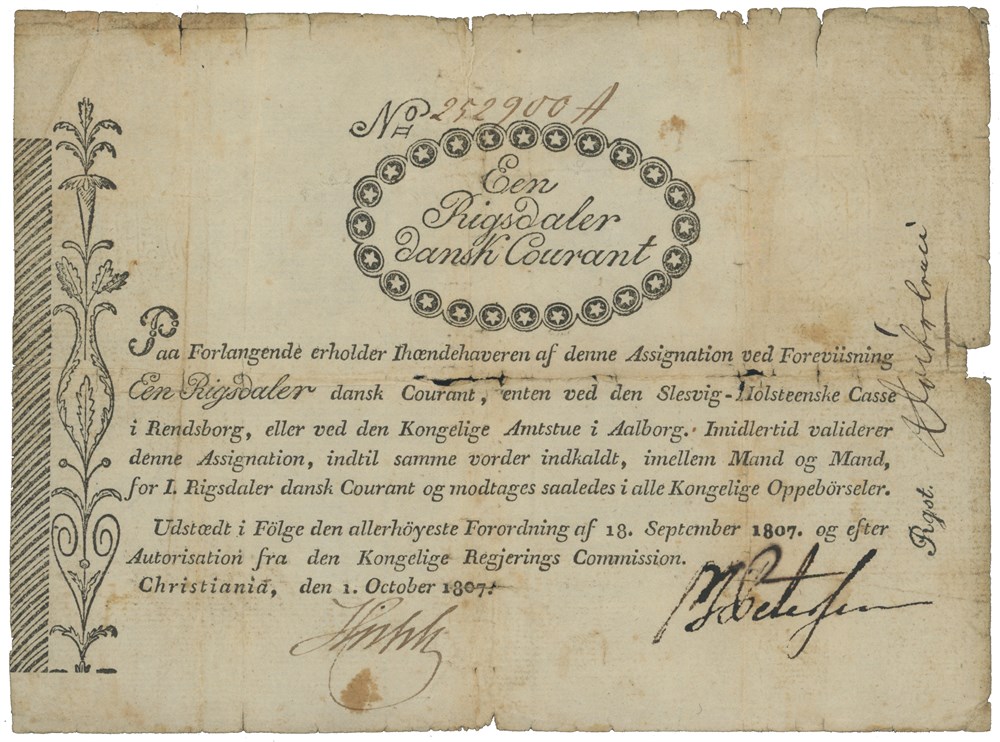 No 252900 A
Een
Rigsdaler
dansk Courant
Paa Forlangende erholder Ihændehaveren af denne Assignation ved Foreviisning
Een Rigsdaler dansk Courant, enten ved den Slesvig-Holsteenske Casse
i Rendsborg, eller ved den Kongelige Amtstue i Aalborg. Imidlertid validerer
denne Assignation, indtil samme vorder indkaldt, imellem Mand og Mand,
for 1. Rigsdaler dansk Courant og modtages saaledes i alle Kongelige Oppebörseler.
Udstædt i Fölge den allerhöyeste Forordning af 18. September 1807. og efter
Autorisation fra den Kongelige Regjerings Commission.
Christiania, den 1. October 1807.
Petersen
Rgst.